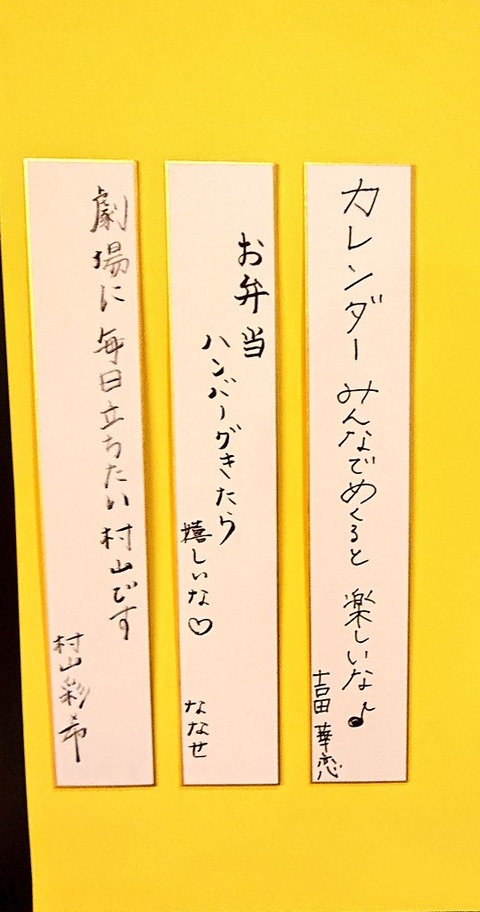 カレンダー みんなでめくると 楽しいな♪
吉田華恋
お弁当
ハンバーグきたら
嬉しいな♡
ななせ
劇場に毎日立ちたい村山です
村山彩希